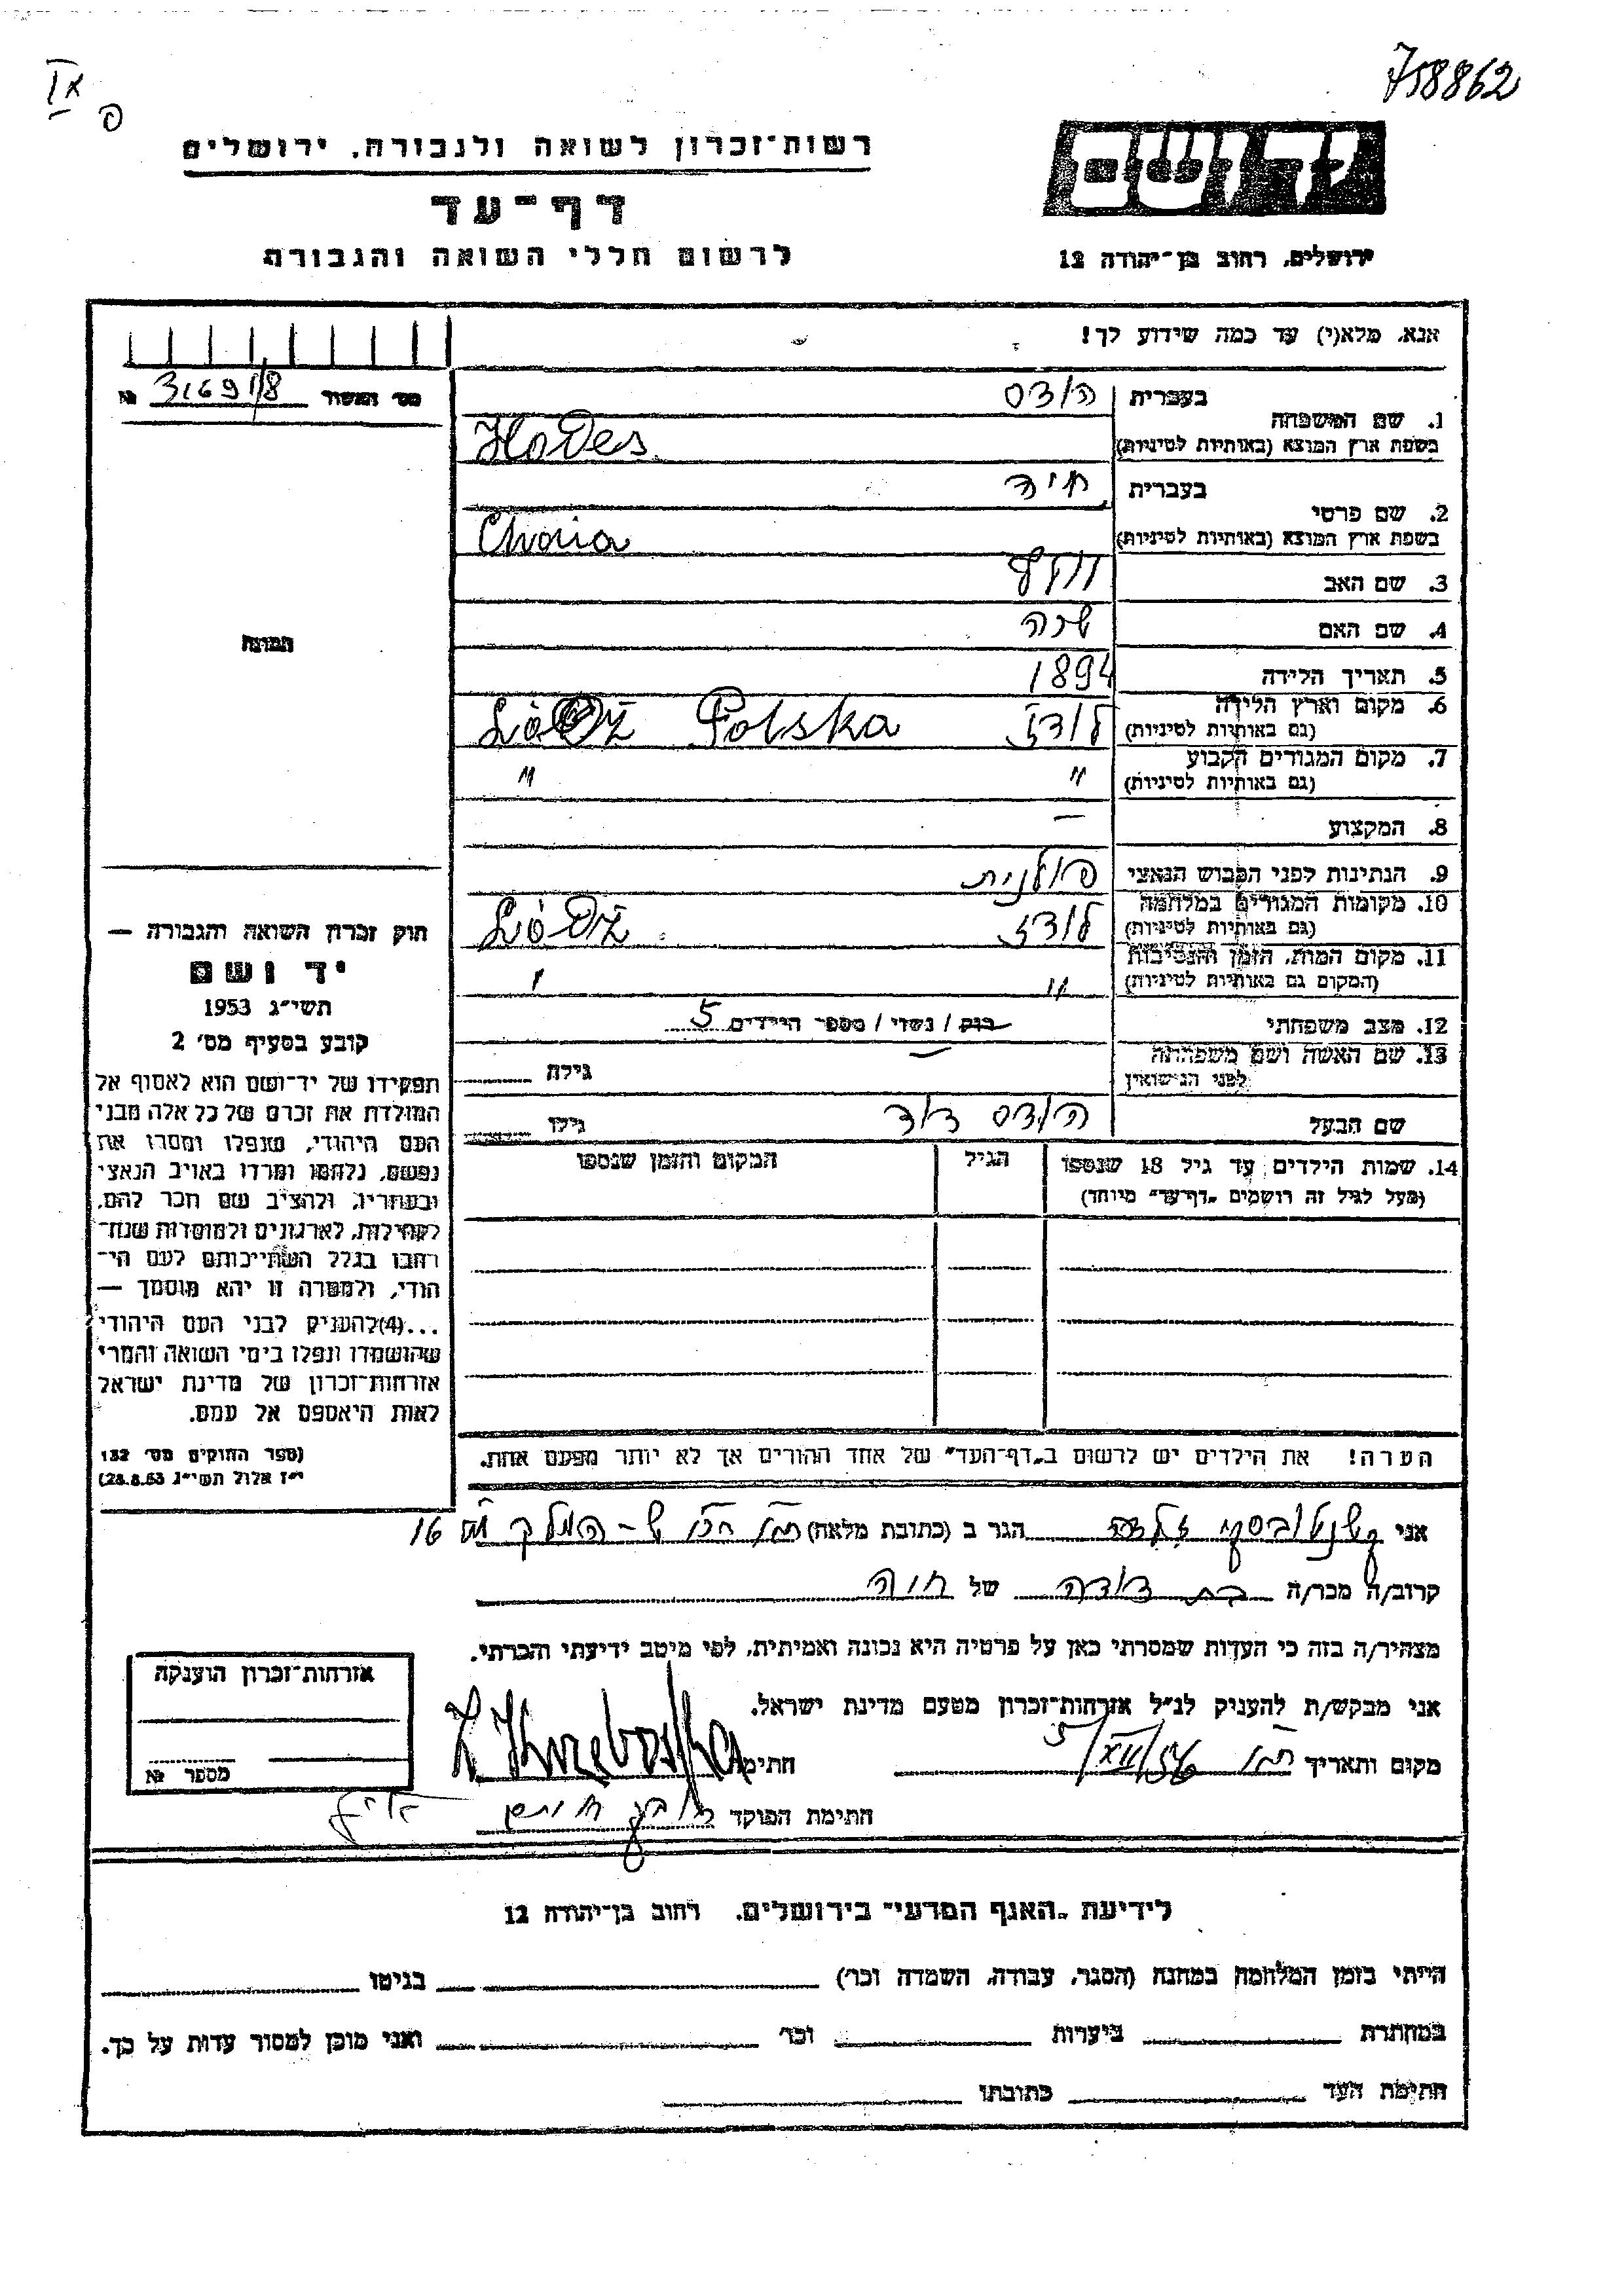 758862
רשות־זכרון לשואה ולגבורה, ירושלים
יד ושם
דף־עד
לרשום חללי השואה והגבורה
ירושלים, רחוב בן־יהודה 12
אנא, מלא(י) עד כמה שידוע לך!
מס׳ האשור 31691/8 №
1. שם המשפחה
בעברית הודס
בשפת ארץ המוצא (באותיות לטיניות) Hodes
2. שם פרטי
בעברית חיה
בשפת ארץ המוצא (באותיות לטיניות) Chaia
3. שם האב וולף
4. שם האם שרה
5. תאריך הלידה 1894
6. מקום וארץ הלידה (גם באותיות לטיניות) לודז Lódż Polska
7. מקום המגורים הקבוע (גם באותיות לטיניות) " "
8. המקצוע —
9. הנתינות לפני הכבוש הנאצי פולנית
10. מקומות המגורים במלחמה (גם באותיות לטיניות) לודז Lódż
11. מקום המות, הזמן והנסיבות (המקום גם באותיות לטיניות) "
12. מצב משפחתי רווק / נשוי / מספר הילדים 5
13. שם האשה ושם משפחתה לפני הנישואין — גילה
שם הבעל הודס דוד גילו
14. שמות הילדים עד גיל 18 שנספו
(מעל לגיל זה רושמים „דף־עד” מיוחד)
הגיל
המקום והזמן שנספו
הערה! את הילדים יש לרשום ב„דף־העד” של אחד ההורים אך לא יותר מפעם אחת.
תמונה
חוק זכרון השואה והגבורה —
יד ושם
תשי״ג 1953
קובע בסעיף מס׳ 2
תפקידו של יד־ושם הוא לאסוף אל
המולדת את זכרם של כל אלה מבני
העם היהודי, שנפלו ומסרו את
נפשם, נלחמו ומרדו באויב הנאצי
ובעוזריו, ולהציב שם וזכר להם,
לקהילות, לארגונים ולמוסדות שנח־
רבו בגלל השתייכותם לעם הי־
הודי, ולמטרה זו יהא מוסמך —
...(4) להעניק לבני העם היהודי
שהושמדו ונפלו בימי השואה והמרי
אזרחות־זכרון של מדינת ישראל
לאות היאספם אל עמם.
(ספר החוקים מס׳ 132
י״ז אלול תשי״ג 28.8.53)
אני הגר ב (כתובת מלאה) 16
קרוב/ה מכר/ה בת דודה של חיה
מצהיר/ה בזה כי העדות שמסרתי כאן על פרטיה היא נכונה ואמיתית, לפי מיטב ידיעתי והכרתי.
אני מבקש/ת להעניק לנ״ל אזרחות־זכרון מטעם מדינת ישראל.
מקום ותאריך 5/XII/56 חתימה
חתימת הפוקד
אזרחות־זכרון הוענקה
מספר №
לידיעת „האגף המדעי” בירושלים, רחוב בן־יהודה 12
הייתי בזמן המלחמה במחנה (הסגר, עבודה, השמדה וכו׳) בגיטו
במחתרת ביערות וכו׳ ואני מוכן למסור עדות על כך.
חתימת העד כתובתו